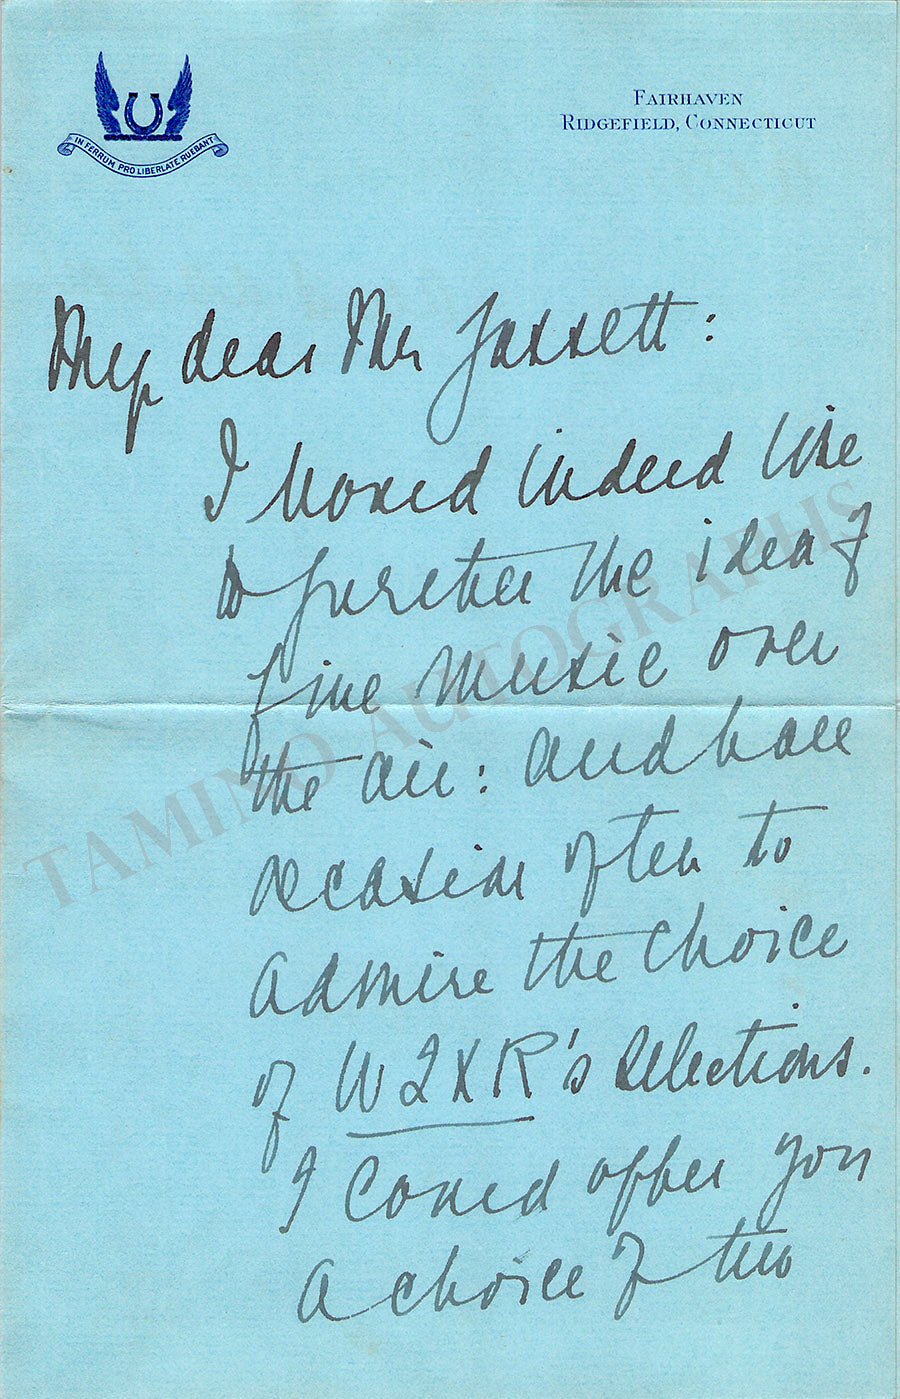 IN FERRUM PRO LIBERLATE RUEBANT
FAIRHAVEN
RIDGEFIELD, CONNECTICUT
My dear Mr Jassett:
I would indeed like
to further the idea of
fine music over
the air: and have
occasion often to
admire the choice
of W2XR's selections.
I could offer you
a choice of two
TAMINO AUTOGRAPHS